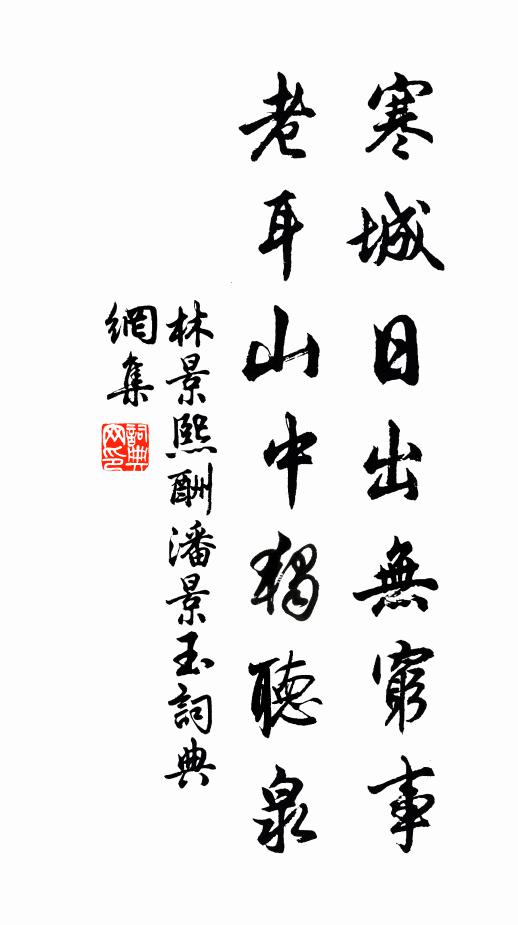 寒城日出無窮事
老耳山中獨聽泉
林景熙酬潘景玉詞典
網集
詞典網印